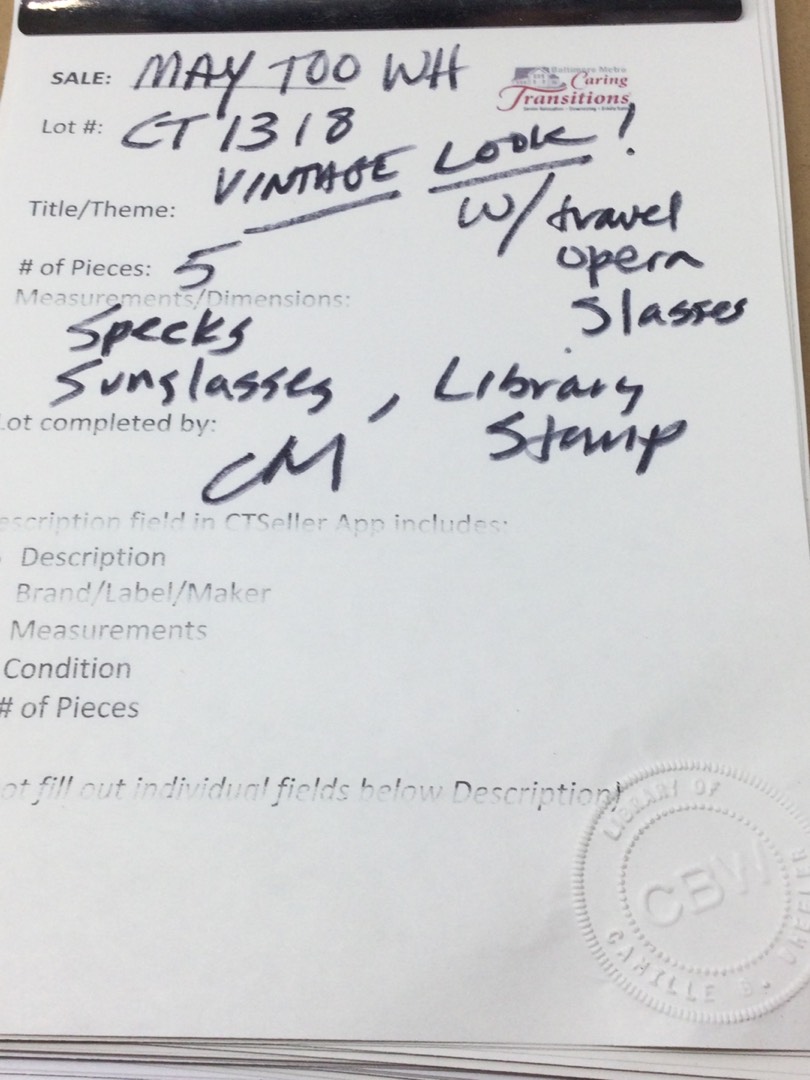 SALE: MAY TOO WH
Baltimore Metro
Caring
Transitions
Lot #: CT 1318
Title/Theme: VINTAGE LOOK!
w/ travel
opera
glasses
# of Pieces: 5
Measurements/Dimensions:
Specks
Sunglasses, Library
Stamp
Lot completed by:
CM
escription field in CTSeller App includes:
Description
Brand/Label/Maker
Measurements
Condition
# of Pieces
ot fill out individual fields below Description)
LIBRARY OF
CBW
CAMILLE B.